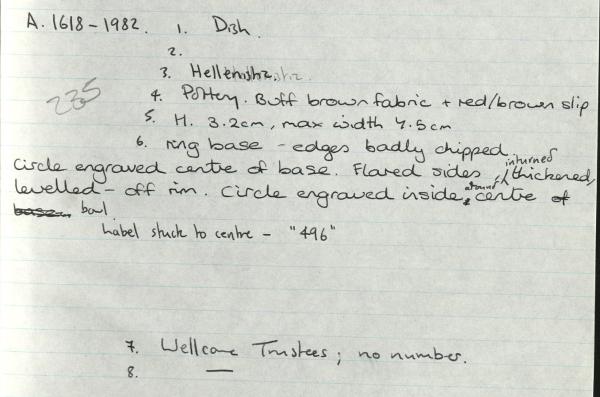 A. 1618-1982. 1. Dish.
2.
235
3. Hellenistic.
4. Pottery. Buff brown fabric + red/brown slip
5. H. 3.2cm, max width 7.5cm
6. ring base - edges badly chipped.
Circle engraved centre of base. Flared sides, inturned, thickened,
levelled-off rim. Circle engraved inside, around centre of
base. bowl.
Label stuck to centre - "496"
7. Wellcome Trustees; no number.
8. —